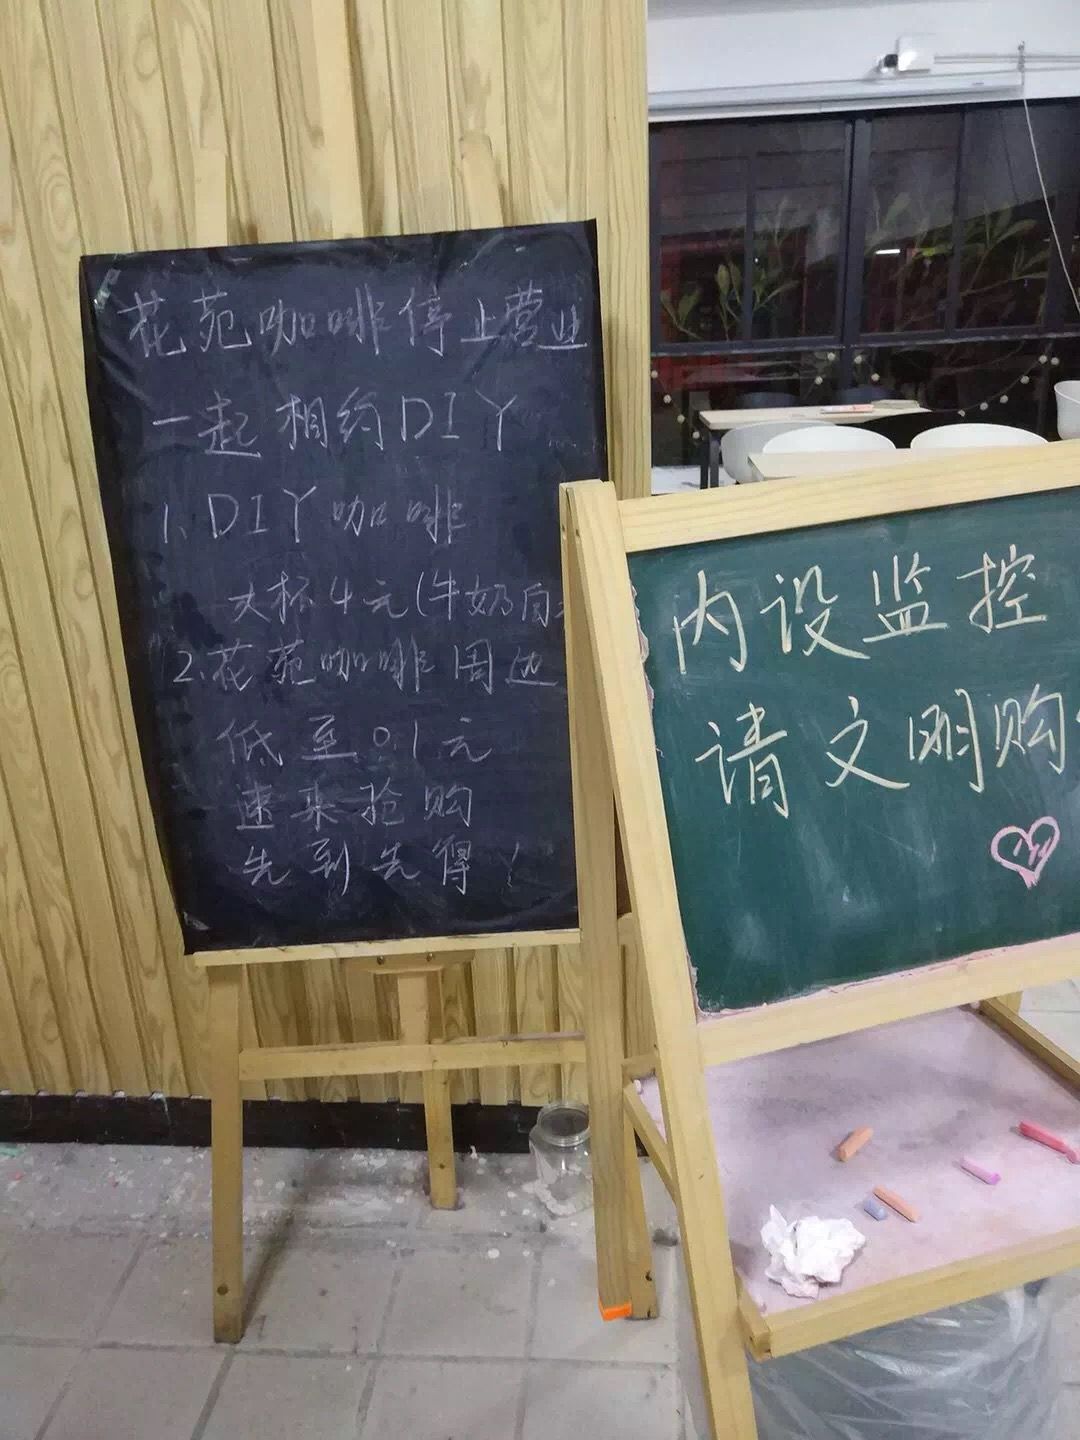 花苑咖啡停止营业
一起相约DIY
1、DIY咖啡
大杯4元(牛奶自
2.花苑咖啡周边
低至0.1元
速来抢购
先到先得！
内设监控
请文明购